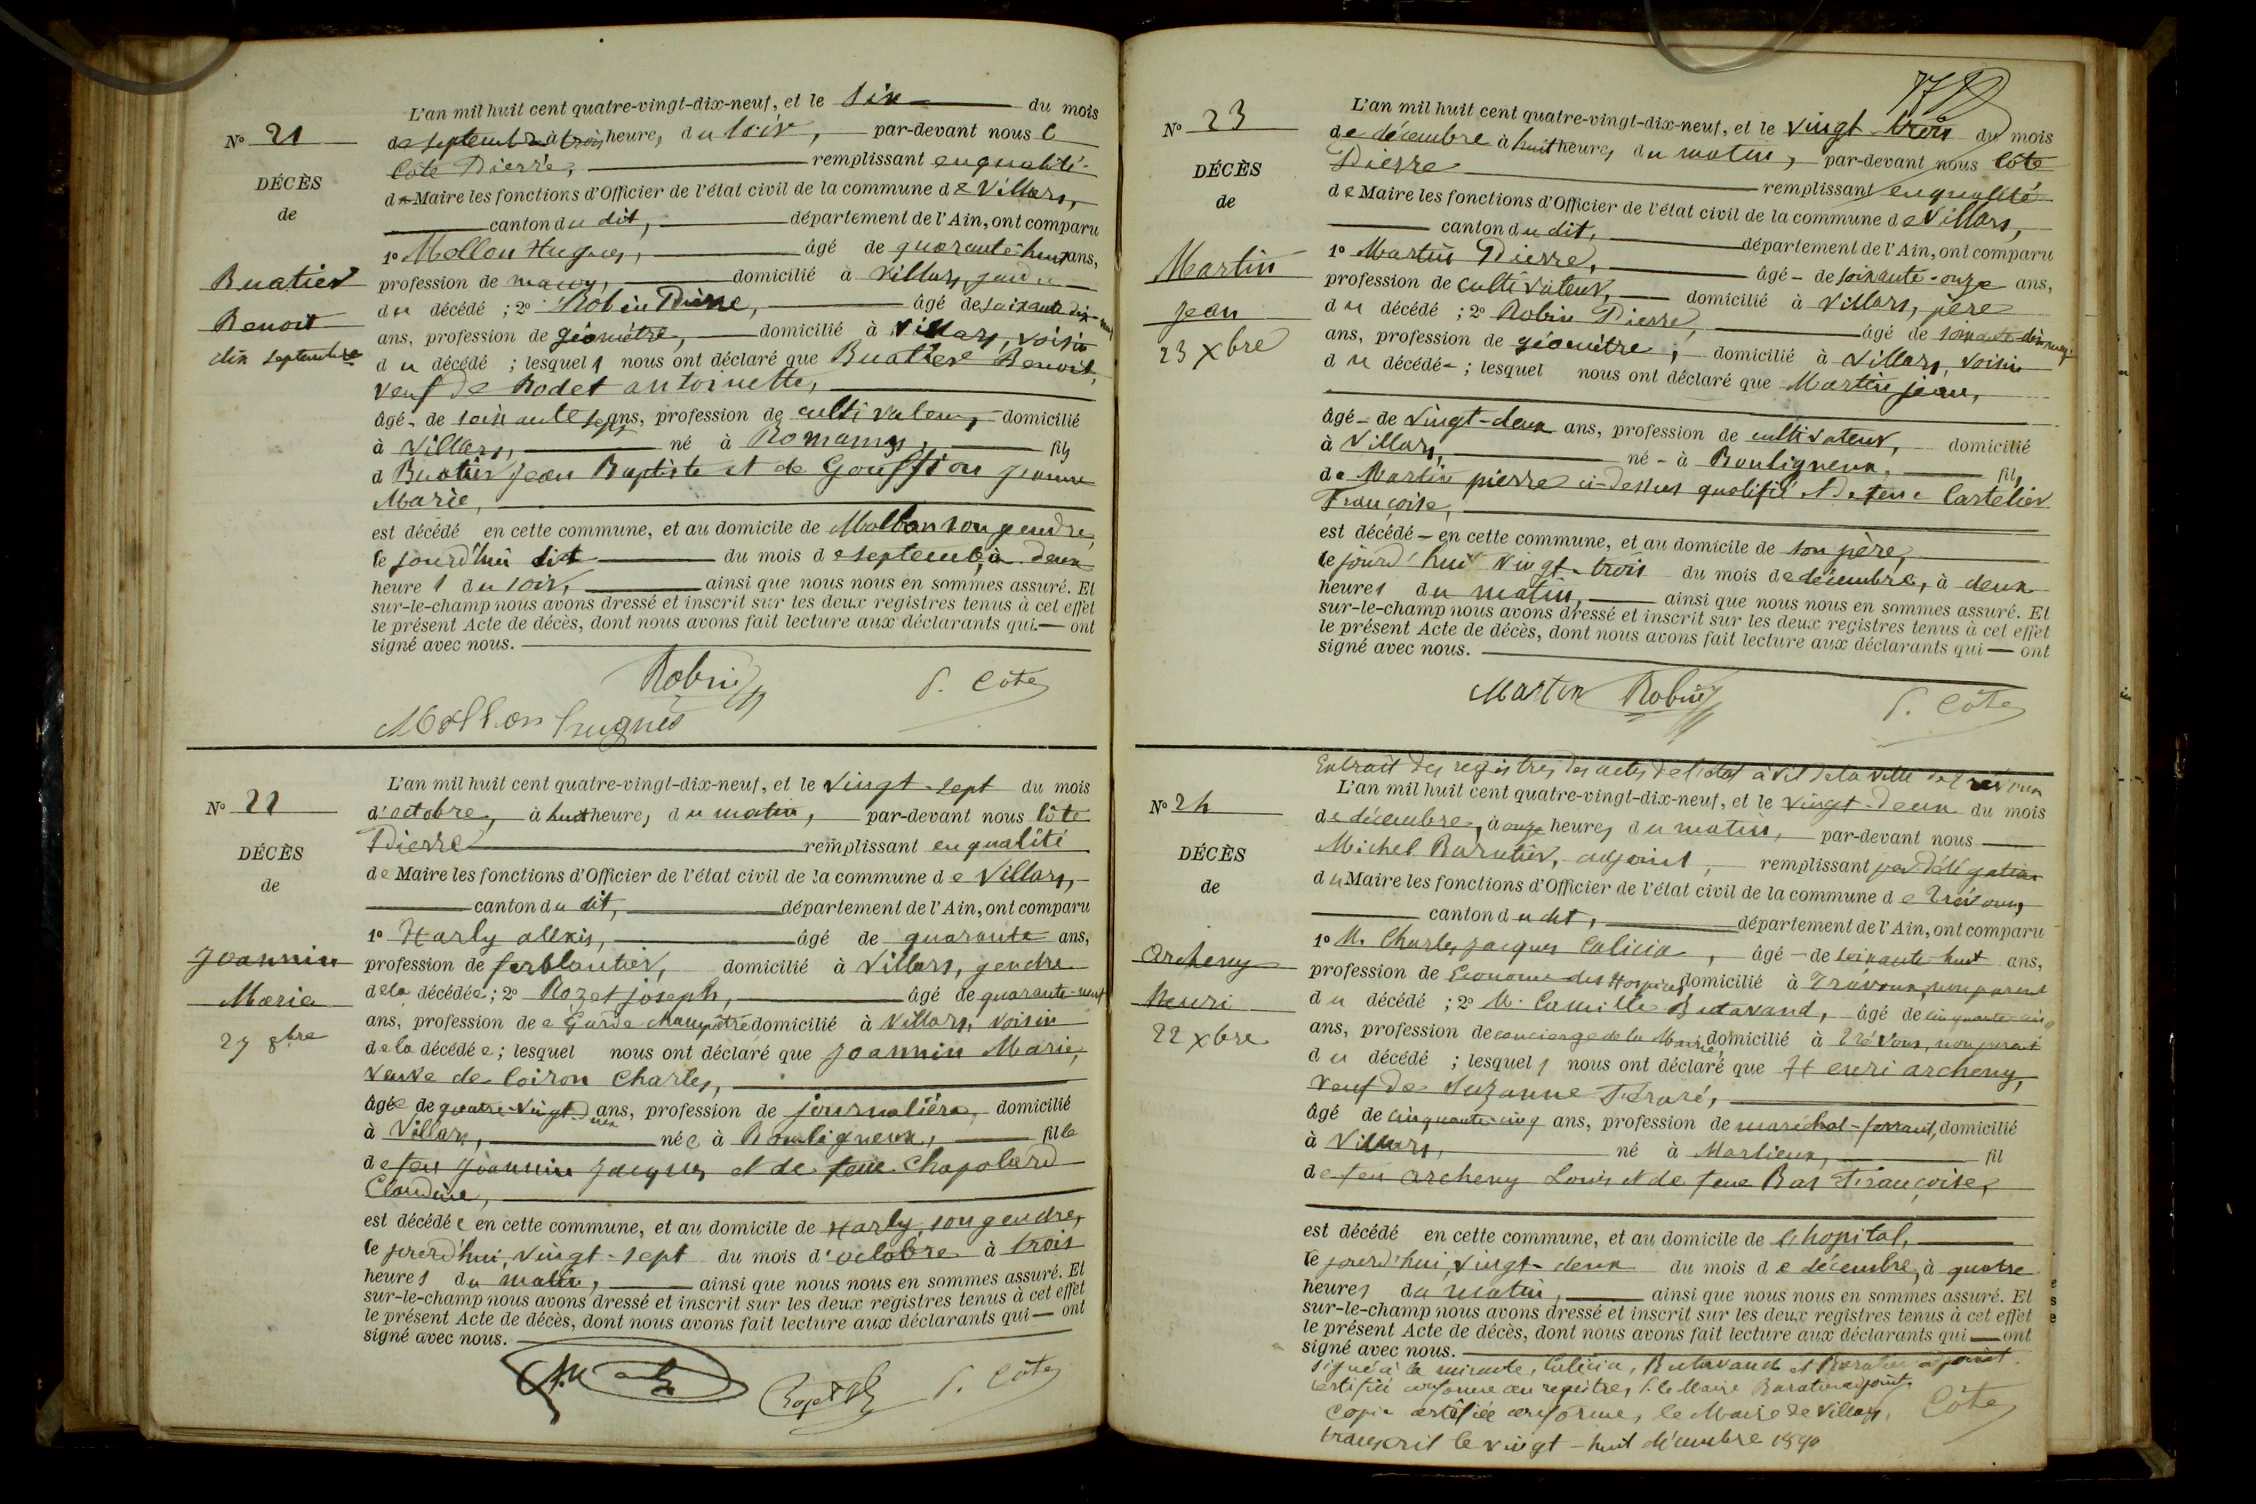 L'an mil huit cent quatre-vingt-dix-neuf, et le dix du mois
N° 21
de septembre à trois heures du soir, par-devant nous C
Côte Pierre, remplissant en qualité
DÉCÈS
de Maire les fonctions d'Officier de l'état civil de la commune de Villars,
de
canton du dit, département de l'Ain, ont comparu
1° Mollon Hugues, âgé de quarante-huit ans,
Buatier
profession de maçon, domicilié à Villars, gendre
du décédé ; 2° Robin Pierre, âgé de soixante dix-neuf
Benoit
ans, profession de géomètre, domicilié à Villars, voisin
dix septembre
du décédé ; lesquels nous ont déclaré que Buatier Benoit,
veuf de Rodet antoinette,
âgé de soixante sept ans, profession de cultivateur, domicilié
à Villars, né à Romanay, fils
d Buatier Jean Baptiste et de Gouffion jeanne
Marie,
est décédé en cette commune, et au domicile de Mollon son gendre,
le jourd'hui dix du mois de septemb, à deux
heures du soir, ainsi que nous nous en sommes assuré. Et
sur-le-champ nous avons dressé et inscrit sur les deux registres tenus à cet effet
le présent Acte de décès, dont nous avons fait lecture aux déclarants qui — ont
signé avec nous.
Robin P. Côte
Mollon hugues
L'an mil huit cent quatre-vingt-dix-neuf, et le vingt-sept du mois
N° 22
d'octobre, à huit heures du matin, par-devant nous Côte
Pierre remplissant en qualité
DÉCÈS
de Maire les fonctions d'Officier de l'état civil de la commune de Villars,
de
canton du dit, département de l'Ain, ont comparu
1° Harly alexis, âgé de quarante ans,
Joannin
profession de ferblantier, domicilié à Villars, gendre
Marie
de la décédée ; 2° Rozet joseph, âgé de quarante-neuf
ans, profession de Garde champêtre domicilié à Villars, voisin
27 8bre
de la décédée ; lesquel nous ont déclaré que Joannin Marie,
veuve de Coiron Charles,
âgée de quatre-vingt deux ans, profession de journalière, domicilié
à Villars, née à Bouligneux, fille
de feu Joannin Jacques et de feue Chapolard
Claudine,
est décédée en cette commune, et au domicile de Harly, son gendre,
le jourd'hui, vingt-sept du mois d'octobre à trois
heures du matin, ainsi que nous nous en sommes assuré. Et
sur-le-champ nous avons dressé et inscrit sur les deux registres tenus à cet effet
le présent Acte de décès, dont nous avons fait lecture aux déclarants qui — ont
signé avec nous.
Rozet P. Côte
L'an mil huit cent quatre-vingt-dix-neuf, et le vingt-trois du mois
N° 23
de décembre à huit heures du matin, par-devant nous Côte
Pierre remplissant en qualité
DÉCÈS
de Maire les fonctions d'Officier de l'état civil de la commune de Villars,
de
canton du dit, département de l'Ain, ont comparu
1° Martin Pierre, âgé de soixante-onze ans,
Martin
profession de cultivateur, domicilié à Villars, père
Jean
du décédé ; 2° Robin Pierre, âgé de soixante-dix-neuf
23 xbre
ans, profession de géomètre, domicilié à Villars, voisin
du décédé ; lesquel nous ont déclaré que Martin jean,
âgé de vingt-deux ans, profession de cultivateur, domicilié
à Villars, né à Bouligneux, fils
de Martin pierre ci-dessus qualifié et de feue Cartelier
Françoise,
est décédé en cette commune, et au domicile de son père,
le jourd'hui vingt-trois du mois de décembre, à deux
heures du matin, ainsi que nous nous en sommes assuré. Et
sur-le-champ nous avons dressé et inscrit sur les deux registres tenus à cet effet
le présent Acte de décès, dont nous avons fait lecture aux déclarants qui — ont
signé avec nous.
Martin Robin P. Côte
Extrait des registres des actes de l'état civil de la ville de Trévoux
L'an mil huit cent quatre-vingt-dix-neuf, et le vingt-deux du mois
N° 24
de décembre, à onze heures du matin, par-devant nous
Michel Baratin, adjoint, remplissant par délégation
DÉCÈS
du Maire les fonctions d'Officier de l'état civil de la commune de Trévoux,
de
canton du dit, département de l'Ain, ont comparu
1° M. Charles Jacques Calicia, âgé de soixante-huit ans,
Archeny
profession de Econome des Hospices domicilié à Trévoux, non parent
Henri
du décédé ; 2° M. Camille Butavand, âgé de cinquante-cinq
22 xbre
ans, profession de concierge de la Mairie, domicilié à Trévoux, non parent
du décédé ; lesquels nous ont déclaré que Henri archeny,
veuf de Suzanne Féraré,
âgé de cinquante-cinq ans, profession de maréchal-ferrant, domicilié
à Villars, né à Marlieux, fil
de feu Archeny Louis et de feue Bas Françoise,
est décédé en cette commune, et au domicile de l'hopital,
le jourd'hui, vingt-deux du mois de décembre, à quatre
heures du matin, ainsi que nous nous en sommes assuré. Et
sur-le-champ nous avons dressé et inscrit sur les deux registres tenus à cet effet
le présent Acte de décès, dont nous avons fait lecture aux déclarants qui — ont
signé avec nous.
signé à la minute, Calicia, Butavand et Baratin adjoint.
certifié conforme au registre, P. le Maire Baratin adjoint.
Copie certifiée conforme, le Maire de Villars, Côte
transcrit le vingt-huit décembre 1899